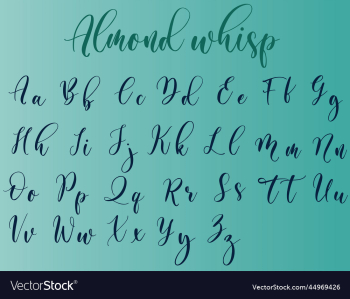 Almond whisp
Aa Bb Cc Dd Ee Ff Gg
Hh Ii Jj Kk Ll Mm Nn
Oo Pp Qq Rr Ss Tt Uu
Vv Ww Xx Yy Zz
VectorStock®
VectorStock.com/44969426